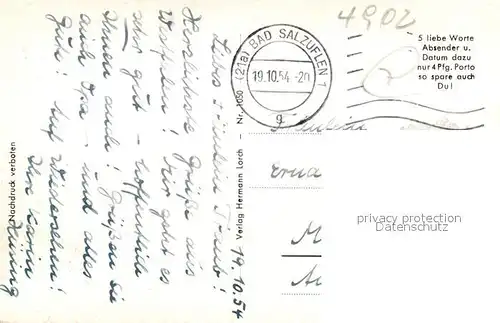 4902
5 liebe Worte
Absender u.
Datum dazu
nur 4 Pfg. Porto
so spare auch
Du!
(21a) BAD SALZUFLEN 1
19.10.54.-20
g
Fräulein
Erna
M
privacy protection
Copyright Protection
19.10.54
Liebes Fräulein Traub!
Herzlichste Grüße aus
Westfalen! Mir geht es
sehr gut - hoffentlich
Ihnen auch! Grüßen Sie
auch Opa - und alles
Gute! Auf Wiedersehn!
Ihre Karin
Verlag Hermann Lorch — Nr. 1050
Nachdruck verboten